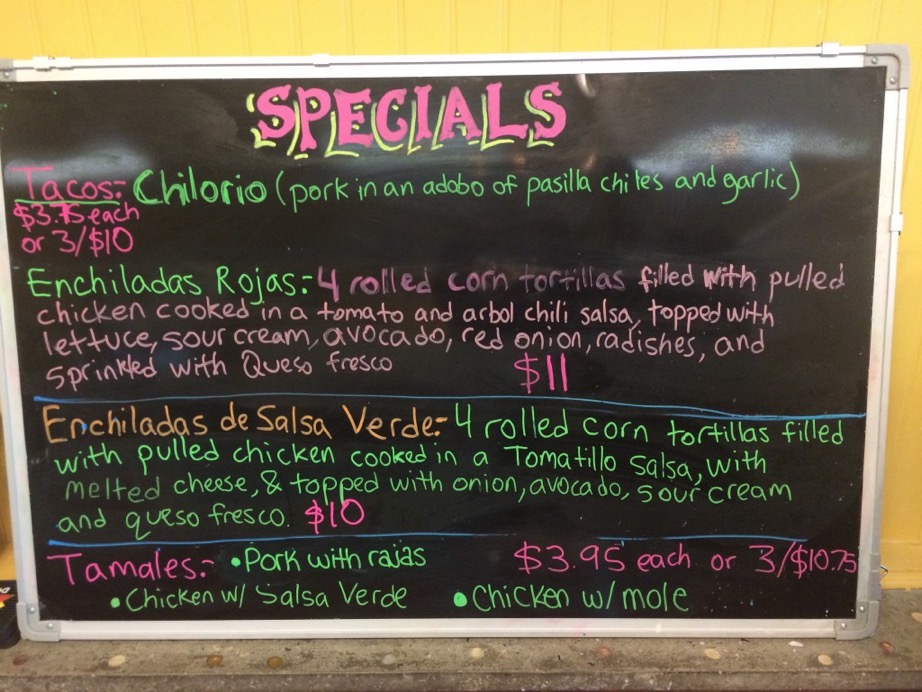 SPECIALS
Tacos:- Chilorio (pork in an adobo of pasilla chiles and garlic)
$3.75 each
or 3/$10
Enchiladas Rojas:- 4 rolled corn tortillas filled with pulled
chicken cooked in a tomato and arbol chili salsa, topped with
lettuce, sour cream, avocado, red onion, radishes, and
sprinkled with Queso fresco $11
Enchiladas de Salsa Verde:- 4 rolled corn tortillas filled
with pulled chicken cooked in a Tomatillo Salsa, with
melted cheese, & topped with onion, avocado, sour cream
and queso fresco. $10
Tamales:- •Pork with rajas $3.95 each or 3/$10.75
•Chicken w/ Salsa Verde •Chicken w/ mole